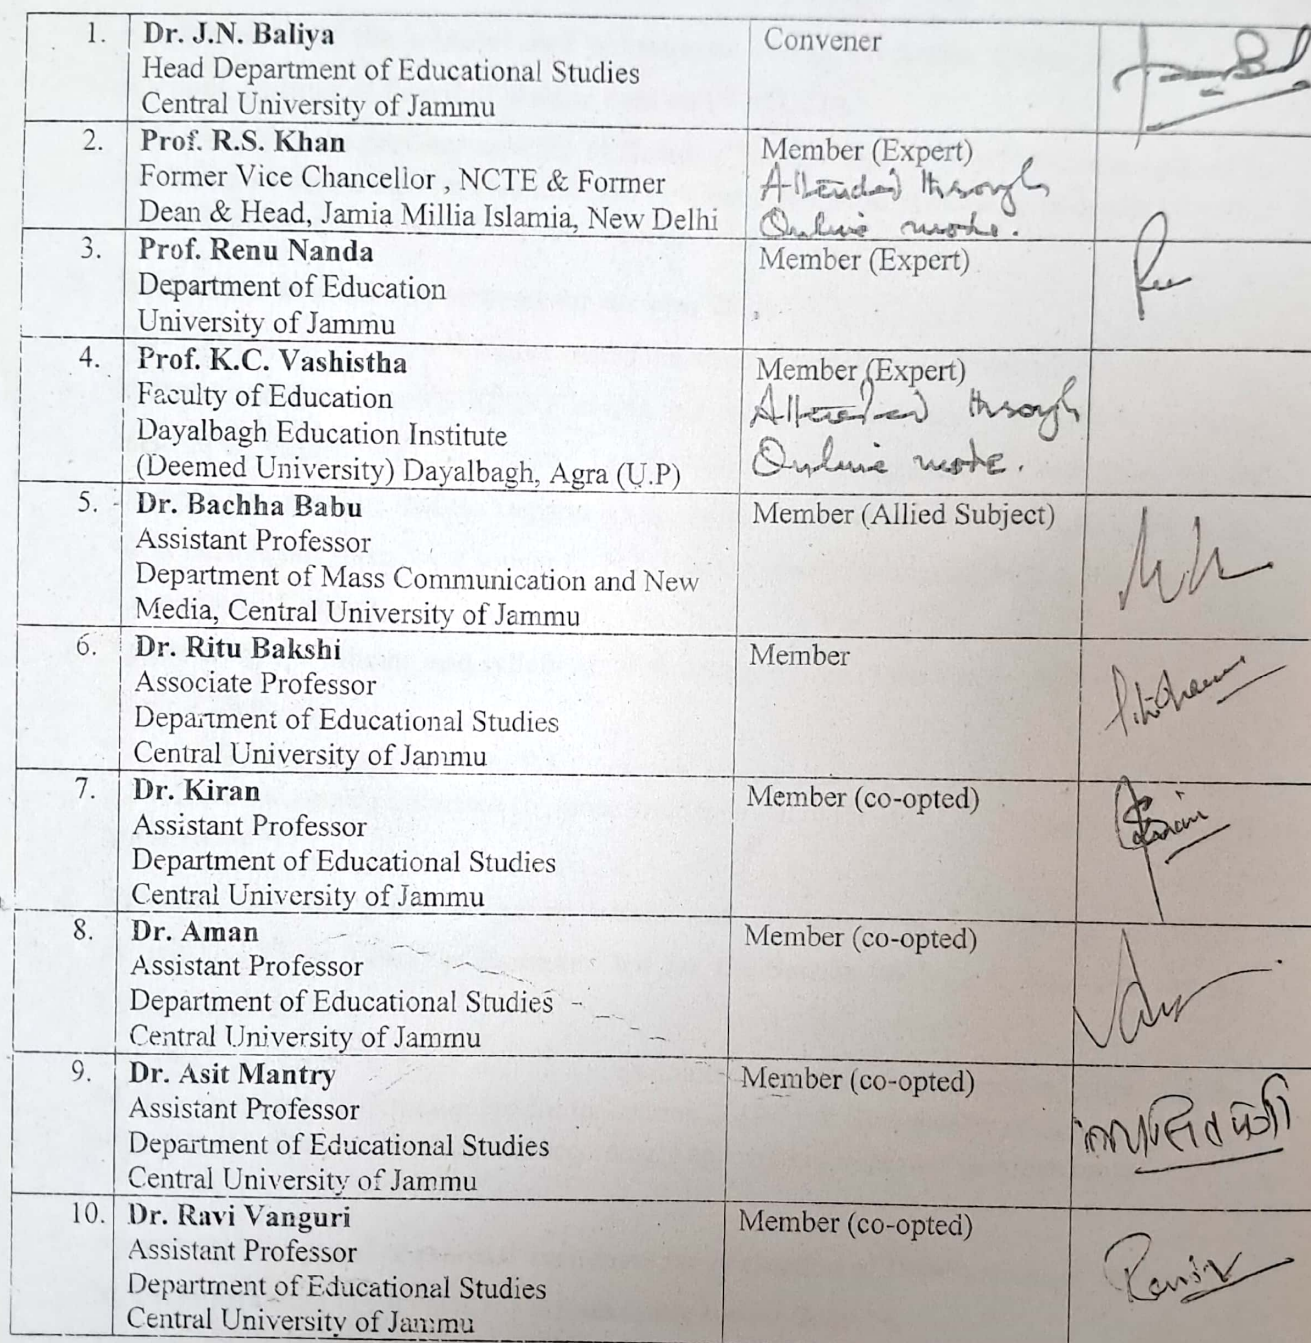 1. Dr. J.N. Baliya
Head Department of Educational Studies
Central University of Jammu
Convener
2. Prof. R.S. Khan
Former Vice Chancellor , NCTE & Former
Dean & Head, Jamia Millia Islamia, New Delhi
Member (Expert)
Attended through
Online mode.
3. Prof. Renu Nanda
Department of Education
University of Jammu
Member (Expert)
4. Prof. K.C. Vashistha
Faculty of Education
Dayalbagh Education Institute
(Deemed University) Dayalbagh, Agra (U.P)
Member (Expert)
Attended through
Online mode.
5. Dr. Bachha Babu
Assistant Professor
Department of Mass Communication and New
Media, Central University of Jammu
Member (Allied Subject)
6. Dr. Ritu Bakshi
Associate Professor
Department of Educational Studies
Central University of Jammu
Member
7. Dr. Kiran
Assistant Professor
Department of Educational Studies
Central University of Jammu
Member (co-opted)
8. Dr. Aman
Assistant Professor
Department of Educational Studies
Central University of Jammu
Member (co-opted)
9. Dr. Asit Mantry
Assistant Professor
Department of Educational Studies
Central University of Jammu
Member (co-opted)
10. Dr. Ravi Vanguri
Assistant Professor
Department of Educational Studies
Central University of Jammu
Member (co-opted)